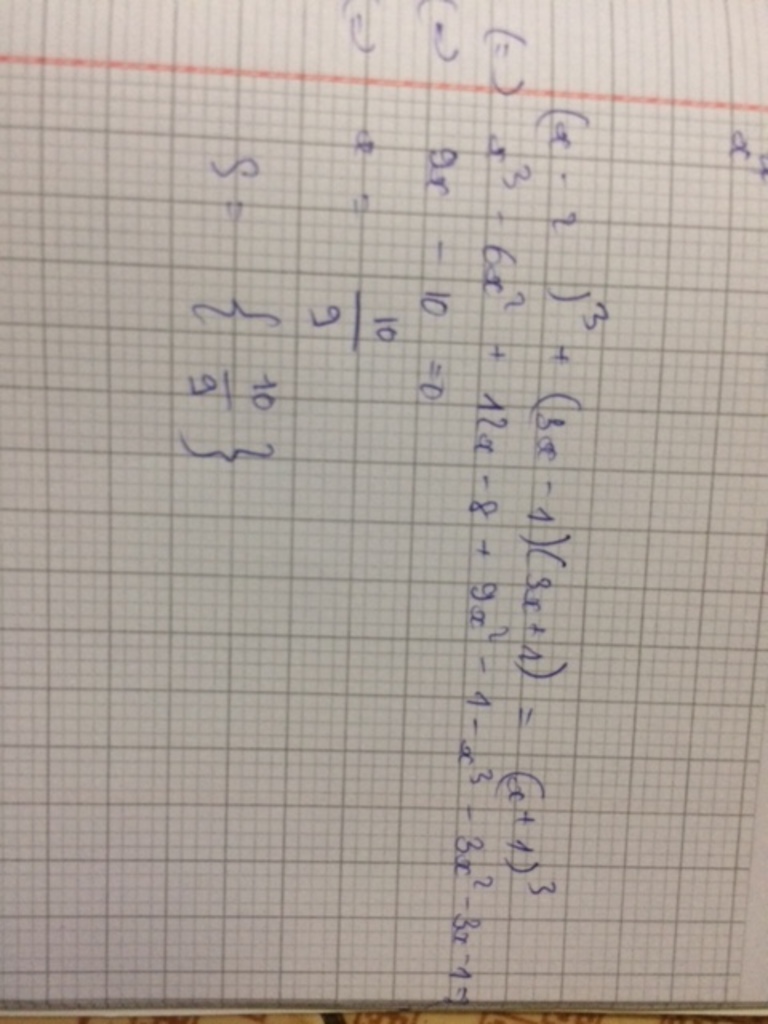 (x - 2)³ + (3x - 1)(3x + 1) = (x + 1)³
(=) x³ - 6x² + 12x - 8 + 9x² - 1 - x³ - 3x² - 3x - 1 =
(=) 9x - 10 = 0
(=) x = 10/9
S = { 10/9 }